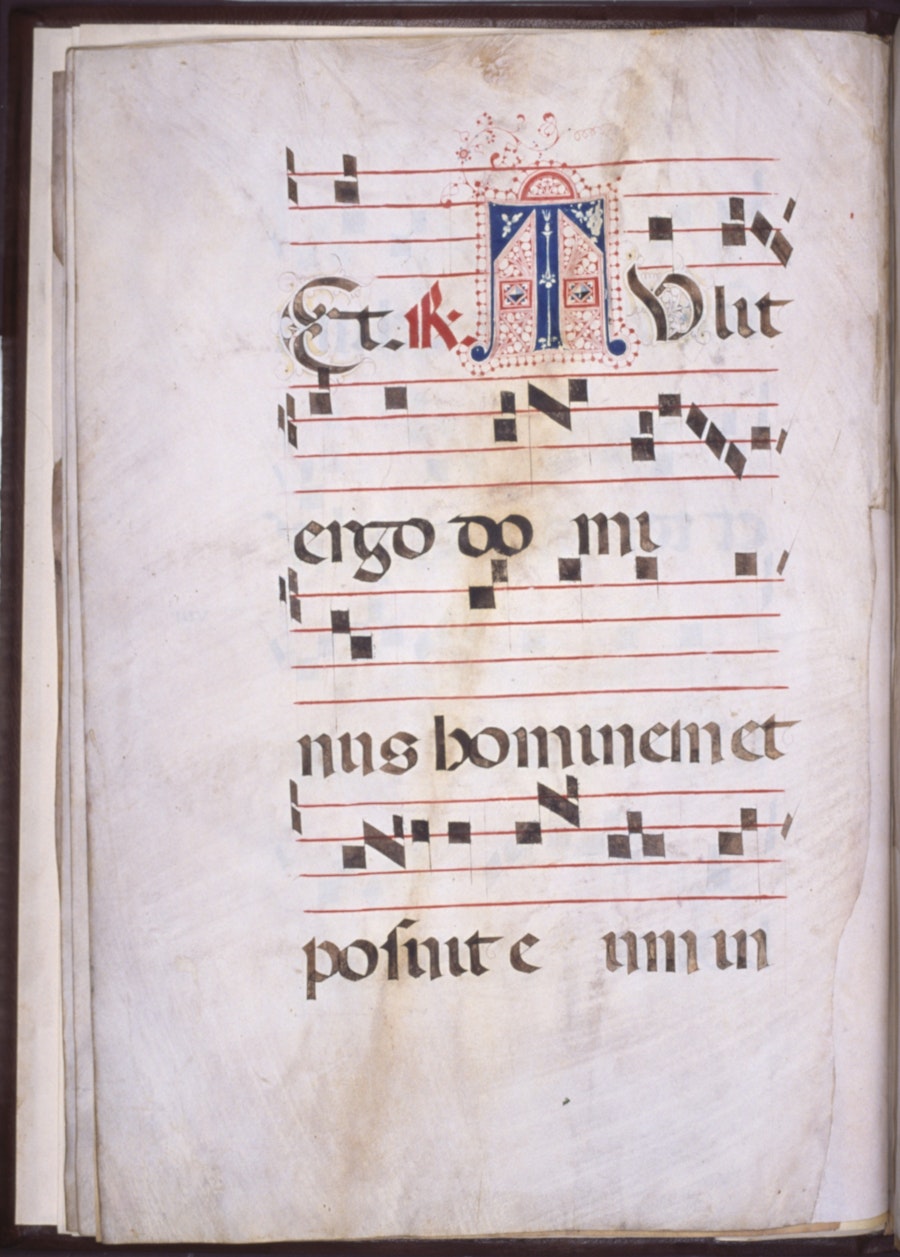 Et. ℟. TVlit
ergo do mi
nus hominem et
poſuit e um in